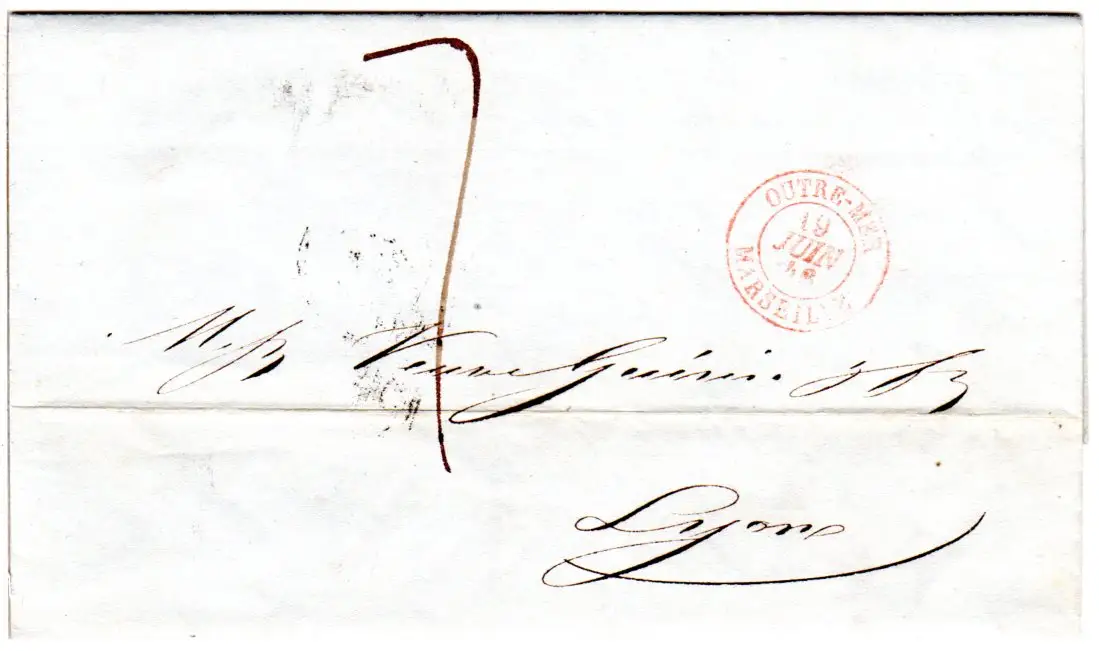 7
OUTRE-MER
19
JUIN
MARSEILLE
Veuve Guérin &
Lyon